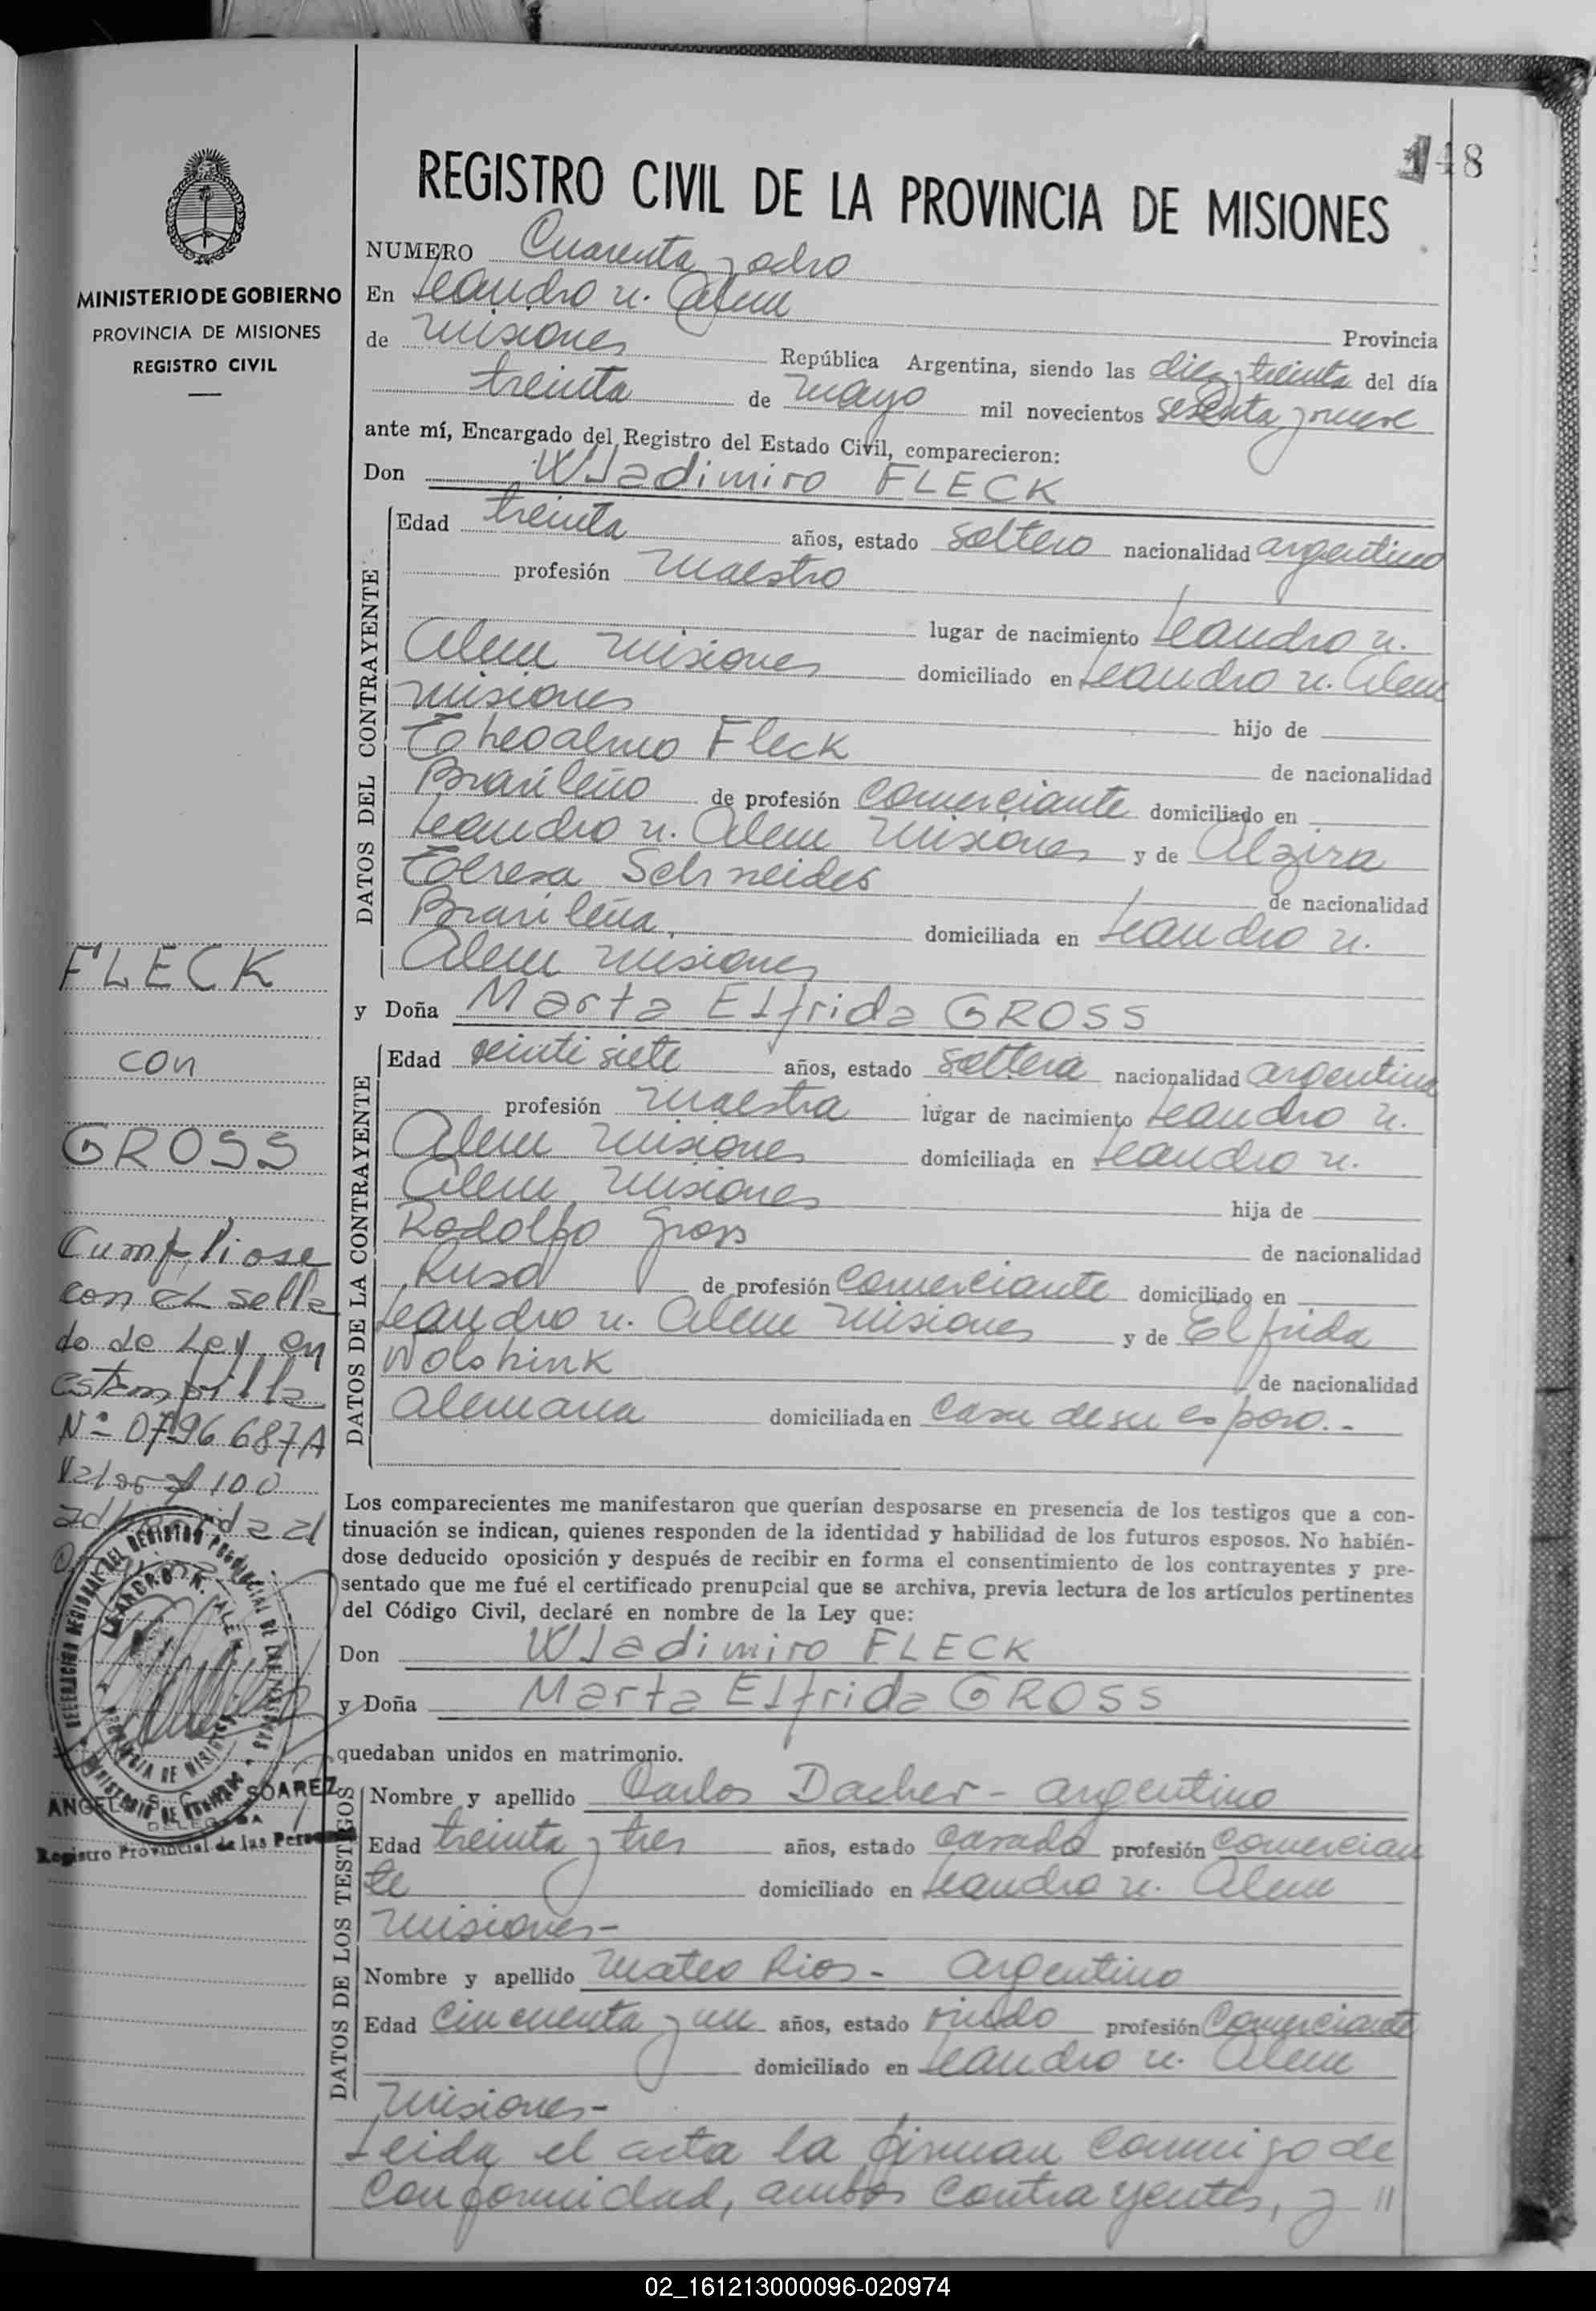 148
REGISTRO CIVIL DE LA PROVINCIA DE MISIONES
MINISTERIO DE GOBIERNO
PROVINCIA DE MISIONES
REGISTRO CIVIL
NUMERO Cuarenta y ocho
En Leandro N. Alem Provincia
de Misiones República Argentina, siendo las diez treinta del día
treinta de Mayo mil novecientos sesenta y nueve
ante mí, Encargado del Registro del Estado Civil, comparecieron:
Don Wladimiro FLECK
DATOS DEL CONTRAYENTE
Edad treinta años, estado soltero nacionalidad argentino
profesión Maestro
lugar de nacimiento Leandro N.
Alem Misiones domiciliado en Leandro N. Alem
Misiones hijo de
Theoalmo Fleck de nacionalidad
Brasileño de profesión Comerciante domiciliado en
Leandro N. Alem Misiones y de Alzira
Teresa Schneider de nacionalidad
Brasileña, domiciliada en Leandro N.
Alem Misiones
y Doña Marta Elfrida GROSS
DATOS DE LA CONTRAYENTE
Edad veinti siete años, estado soltera nacionalidad argentina
profesión Maestra lugar de nacimiento Leandro N.
Alem Misiones domiciliada en Leandro N.
Alem, Misiones hija de
Rodolfo Gross de nacionalidad
Rusa de profesión Comerciante domiciliado en
Leandro N. Alem Misiones y de Elfrida
Wolshink de nacionalidad
Alemana domiciliada en Casa de su esposo.-
Los comparecientes me manifestaron que querían desposarse en presencia de los testigos que a con-
tinuación se indican, quienes responden de la identidad y habilidad de los futuros esposos. No habién-
dose deducido oposición y después de recibir en forma el consentimiento de los contrayentes y pre-
sentado que me fué el certificado prenupcial que se archiva, previa lectura de los artículos pertinentes
del Código Civil, declaré en nombre de la Ley que:
Don Wladimiro FLECK
y Doña Marta Elfrida GROSS
quedaban unidos en matrimonio.
DATOS DE LOS TESTIGOS
Nombre y apellido Carlos Dacher - argentino
Edad treinta y tres años, estado casado profesión Comercian
te domiciliado en Leandro N. Alem
Misiones-
Nombre y apellido Mateo Rios - Argentino
Edad Cincuenta y un años, estado viudo profesión Comerciante
domiciliado en Leandro N. Alem
Misiones-
Leida el acta la firman conmigo de
Conformidad, ambos contrayentes, y //
FLECK
con
GROSS
Cumpliose
con el sella
do de Ley en
estampilla
Nº 0796687A
Valor $ 100
adherida al
DELEGACION REGIONAL DEL REGISTRO PROVINCIAL DE LAS PERSONAS
LEANDRO N. ALEM
PROVINCIA DE MISIONES
MINISTERIO DE GOBIERNO
SOAREZ
DELEGADA
Registro Provincial de las Personas
02_161213000096-020974